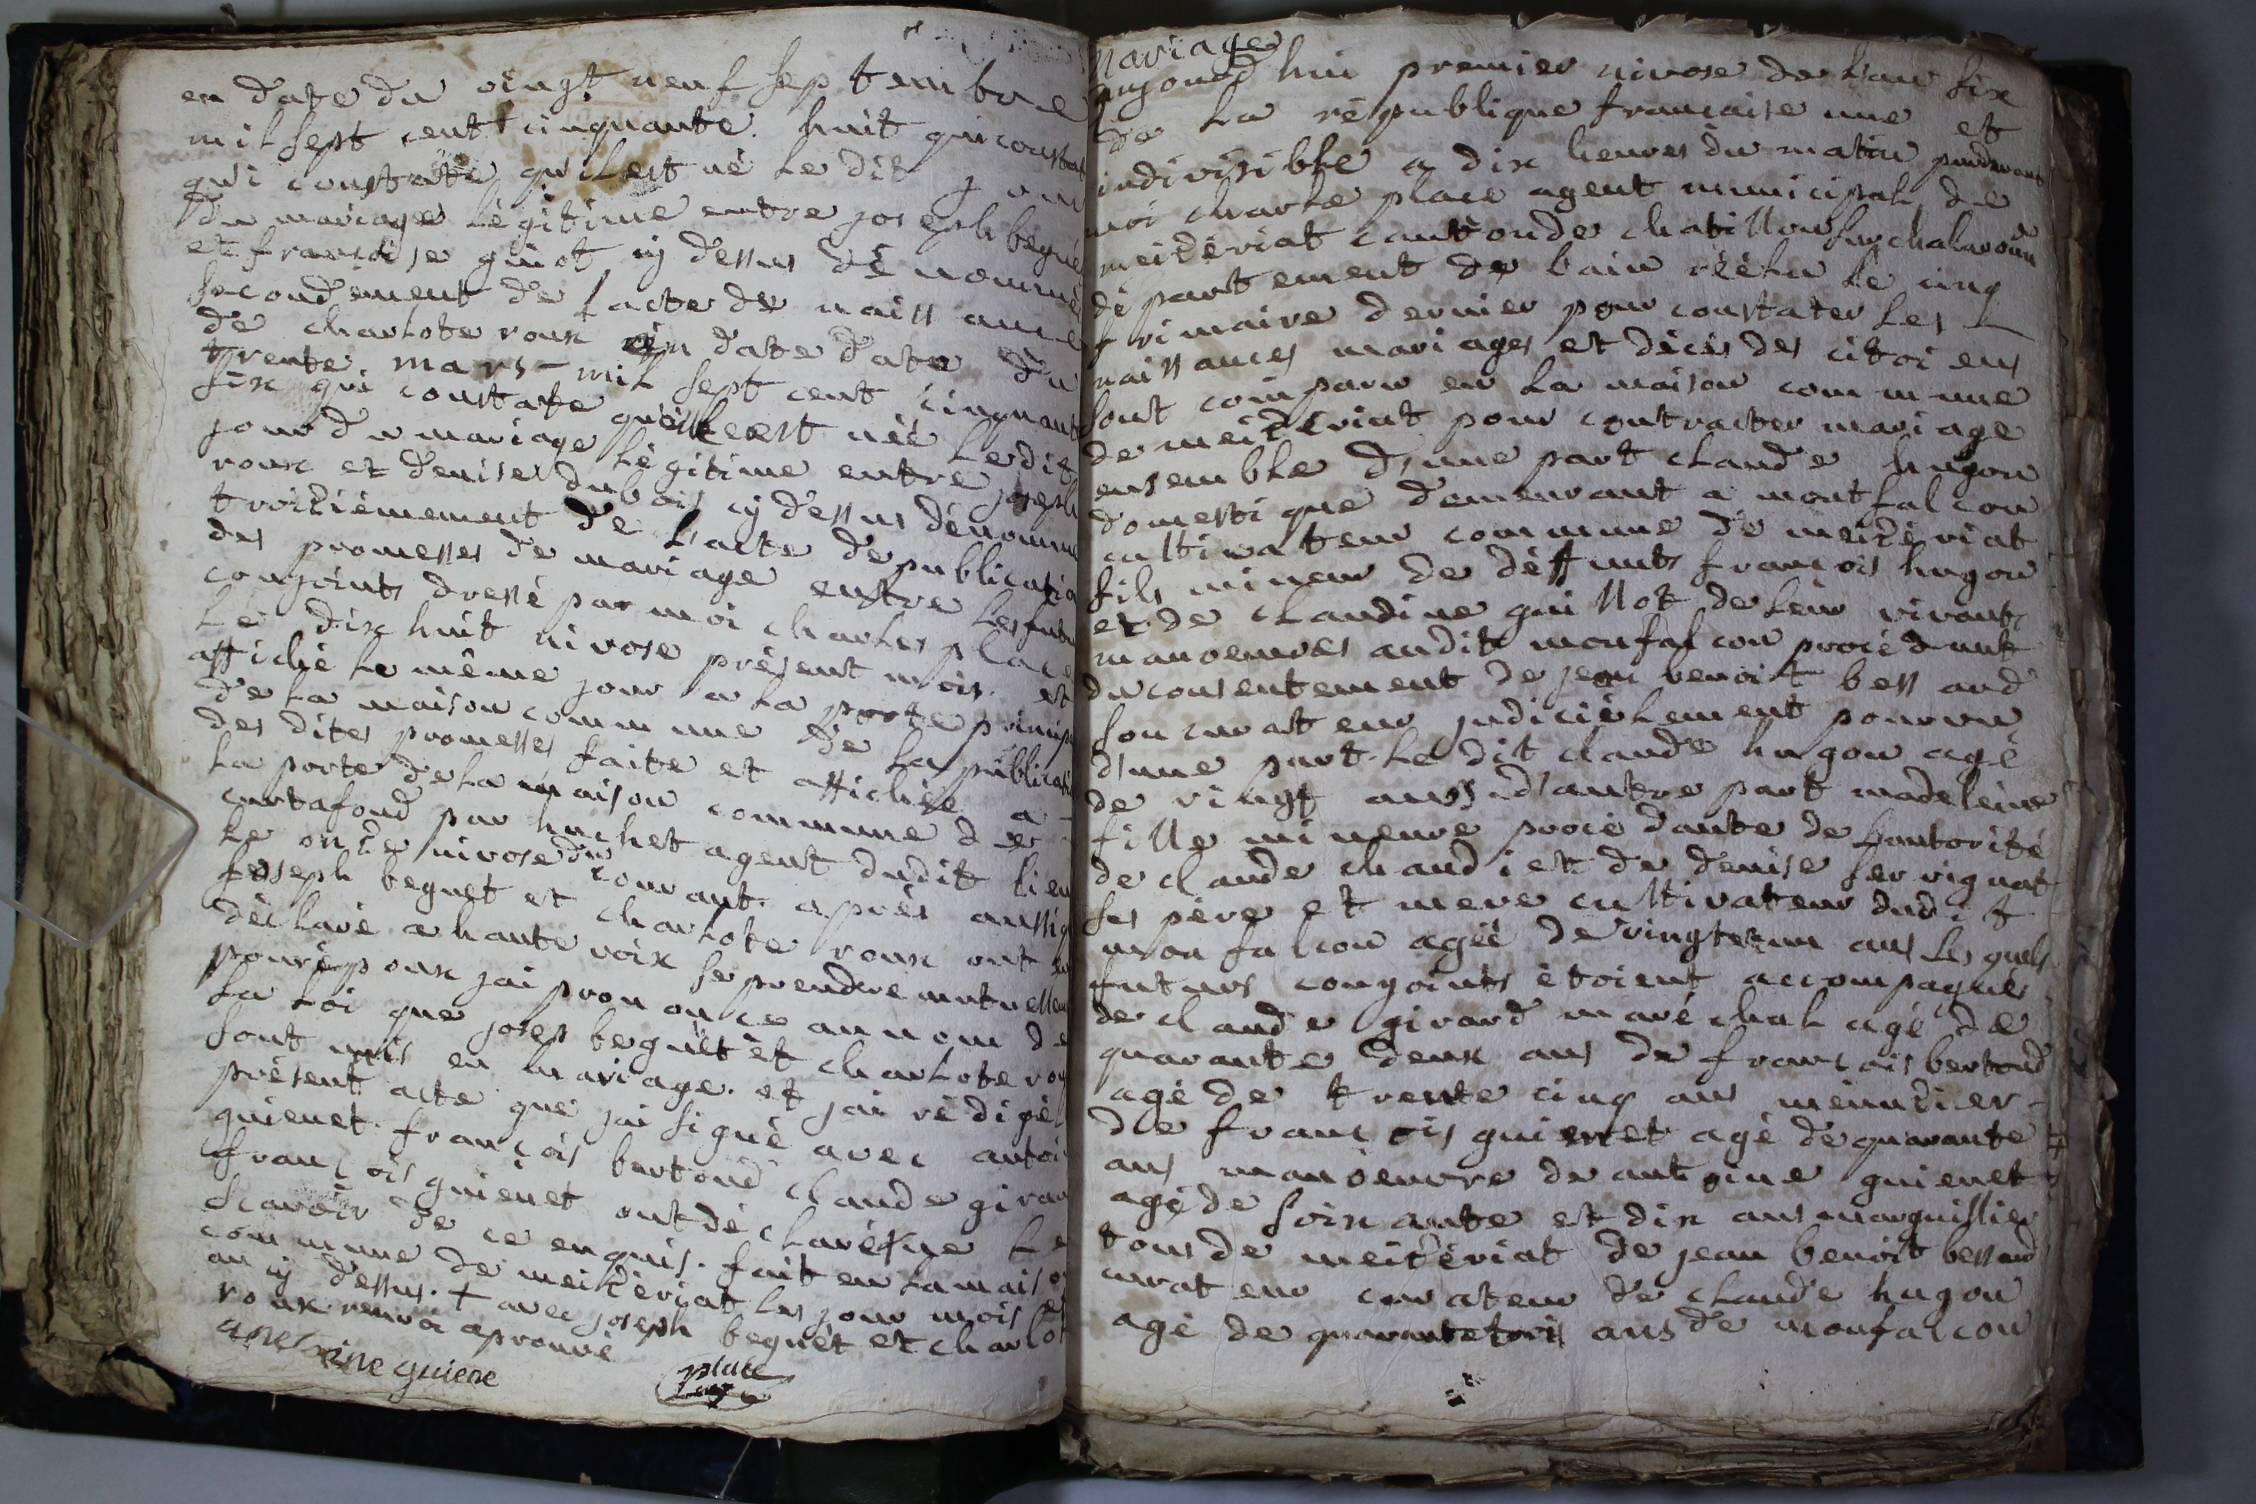 en date du vingt neuf septembre
mil sept cent cinquante huit qui constat
qui constate qu'il est né le dit jour
du mariage légitime entre joseph begué
et francoise guiot cy dessus dénommé
secondement de lacte de naissance
de charlote roux en date date du
trente mars mil sept cent cinquante
six qui constate quelle est néé ledit
jour du mariage légitime entre joseph
roux et denise dubois cy dessus dénommé
troiziémement de lacte de publicatio
des promesses de mariage entre les futu
conjoints dressé par moi charles place
le dix huit nivose présent mois et
affiché le même jour a la porte princip
de la maison commune de la publicati
des dites promesses faite et affichée a
la porte de la maison commune de
curtafond par huchet agent dudit lieu
le onze nivose du courant après aussi q
joseph beguet et charlote roux ont
déclaré a haute voix se prendre mutuellem
pour époux jai prononcé au nom de
la loi que joseph beguët et charlote rou
sont unis en mariage et jai rédigé
présent acte que jai signé avec antoi
guienet françois bertoud claude girar
françois guienet ont déclaré que le
scavoir de ce enquis. fait en la maiso
commune de meizériat les jour mois et
an cy dessus. + avec joseph beguët et charlot
roux renvoi aprouvé
guiene place
Mariage
aujourd hui premier nivose de l'an six
de la république francaise une et
indivisible a dix heures du matin pardevant
moi charle place agent municipal de
meizériat canton de chatillon sur chalaronne
département de l'ain réélu le cinq
frimaire dernier pour constater les
naissances mariages et décés des citoiens
sont comparu en la maison commune
de meizériat pour contracter mariage
ensemble d'une part claude hugon
domestique demeurant a montfalcon
cultivateur commune de meizériat
fils mineur de déffunts françois hugon
et de claudine guillot de leur vivant
manoeuvres audit monfalcon procédant
du consentement de jean benoit bessard
son curateur judiciélement pourvu
d'une part le dit claude hugon agé
de vingt ans d'autre part madeleine
fille mineure procédante de lautorité
de claude chaudi et de denise servignat
ses père et mere cultivateur dudit
monfalcon agéé de vingt et un ans les quels
futurs conjoints étoient accompagnés
de claude girard maréchal agé de
quarante deux ans de françois bertoud
agé de trente cinq ans menuzier
de françois guienet agé de quarante
ans manoeuvre de antoine guienet
agé de soixante et dix ans marguillier
tous de meizériat de jean benoit bessard
curateur curateur de claude hugon
agé de quarante trois ans de monfalcon